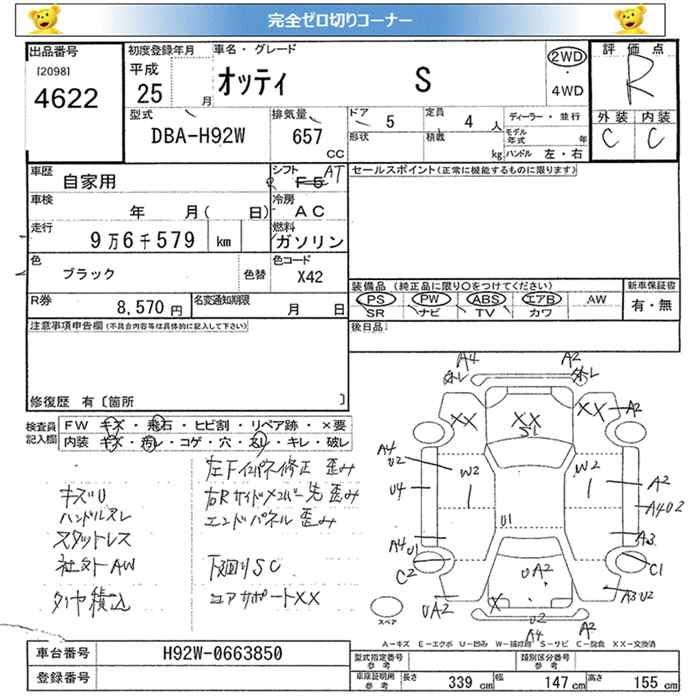 完全ゼロ切りコーナー
出品番号
[2098]
4622
初度登録年月
平成
25 月
車名・グレード
オッティ S
2WD
・
4WD
評価点
R
外装 内装
C C
型式
DBA-H92W
排気量
657
CC
ドア 5
定員 4 人
ディーラー・並行
形状
積載 kg
モデル年式 年
ハンドル 左・右
車歴
自家用
シフト AT
F5
セールスポイント(正常に機能するものに限ります)
車検
年 月( 日)
冷房
AC
走行
9万6千579 km
燃料
ガソリン
色
ブラック
色替
色コード
X42
装備品 (純正品に限り○をつけてください)
新車保証書
PS PW ABS エアB AW
SR ナビ TV カワ
有・無
R券
8,570 円
名変通知期限
月 日
後日品
注意事項申告欄(不具合内容等は具体的に記入して下さい)
修復歴 有〔箇所 〕
検査員記入欄
FW キズ・飛石・ヒビ割・リペア跡・×要
内装 キズ・汚レ・コゲ・穴・スレ・キレ・破レ
左Fインパネ修正 歪み
キズU
右Rサイドメンバー先 歪み
ハンドルスレ
エンドパネル 歪み
スタットレス
社外AW
下廻りSC
タイヤ積込
コアサポートXX
A4 A2
XX XX XX A2
S1
A4
U2
W2 W2
U4 A2
A4U2
U1
A4 U1 A3
C2 C1
UA2
UA2 X A3U2
U2
A4 A2
スペア
A-キズ E-エクボ U-凹み W-補修跡 S-サビ C-腐食 XX-交換済
車台番号
H92W-0663850
登録番号
型式指定番号
参考
類別区分番号
参考
車庫証明用
参考
長さ 339 cm 幅 147 cm 高さ 155 cm